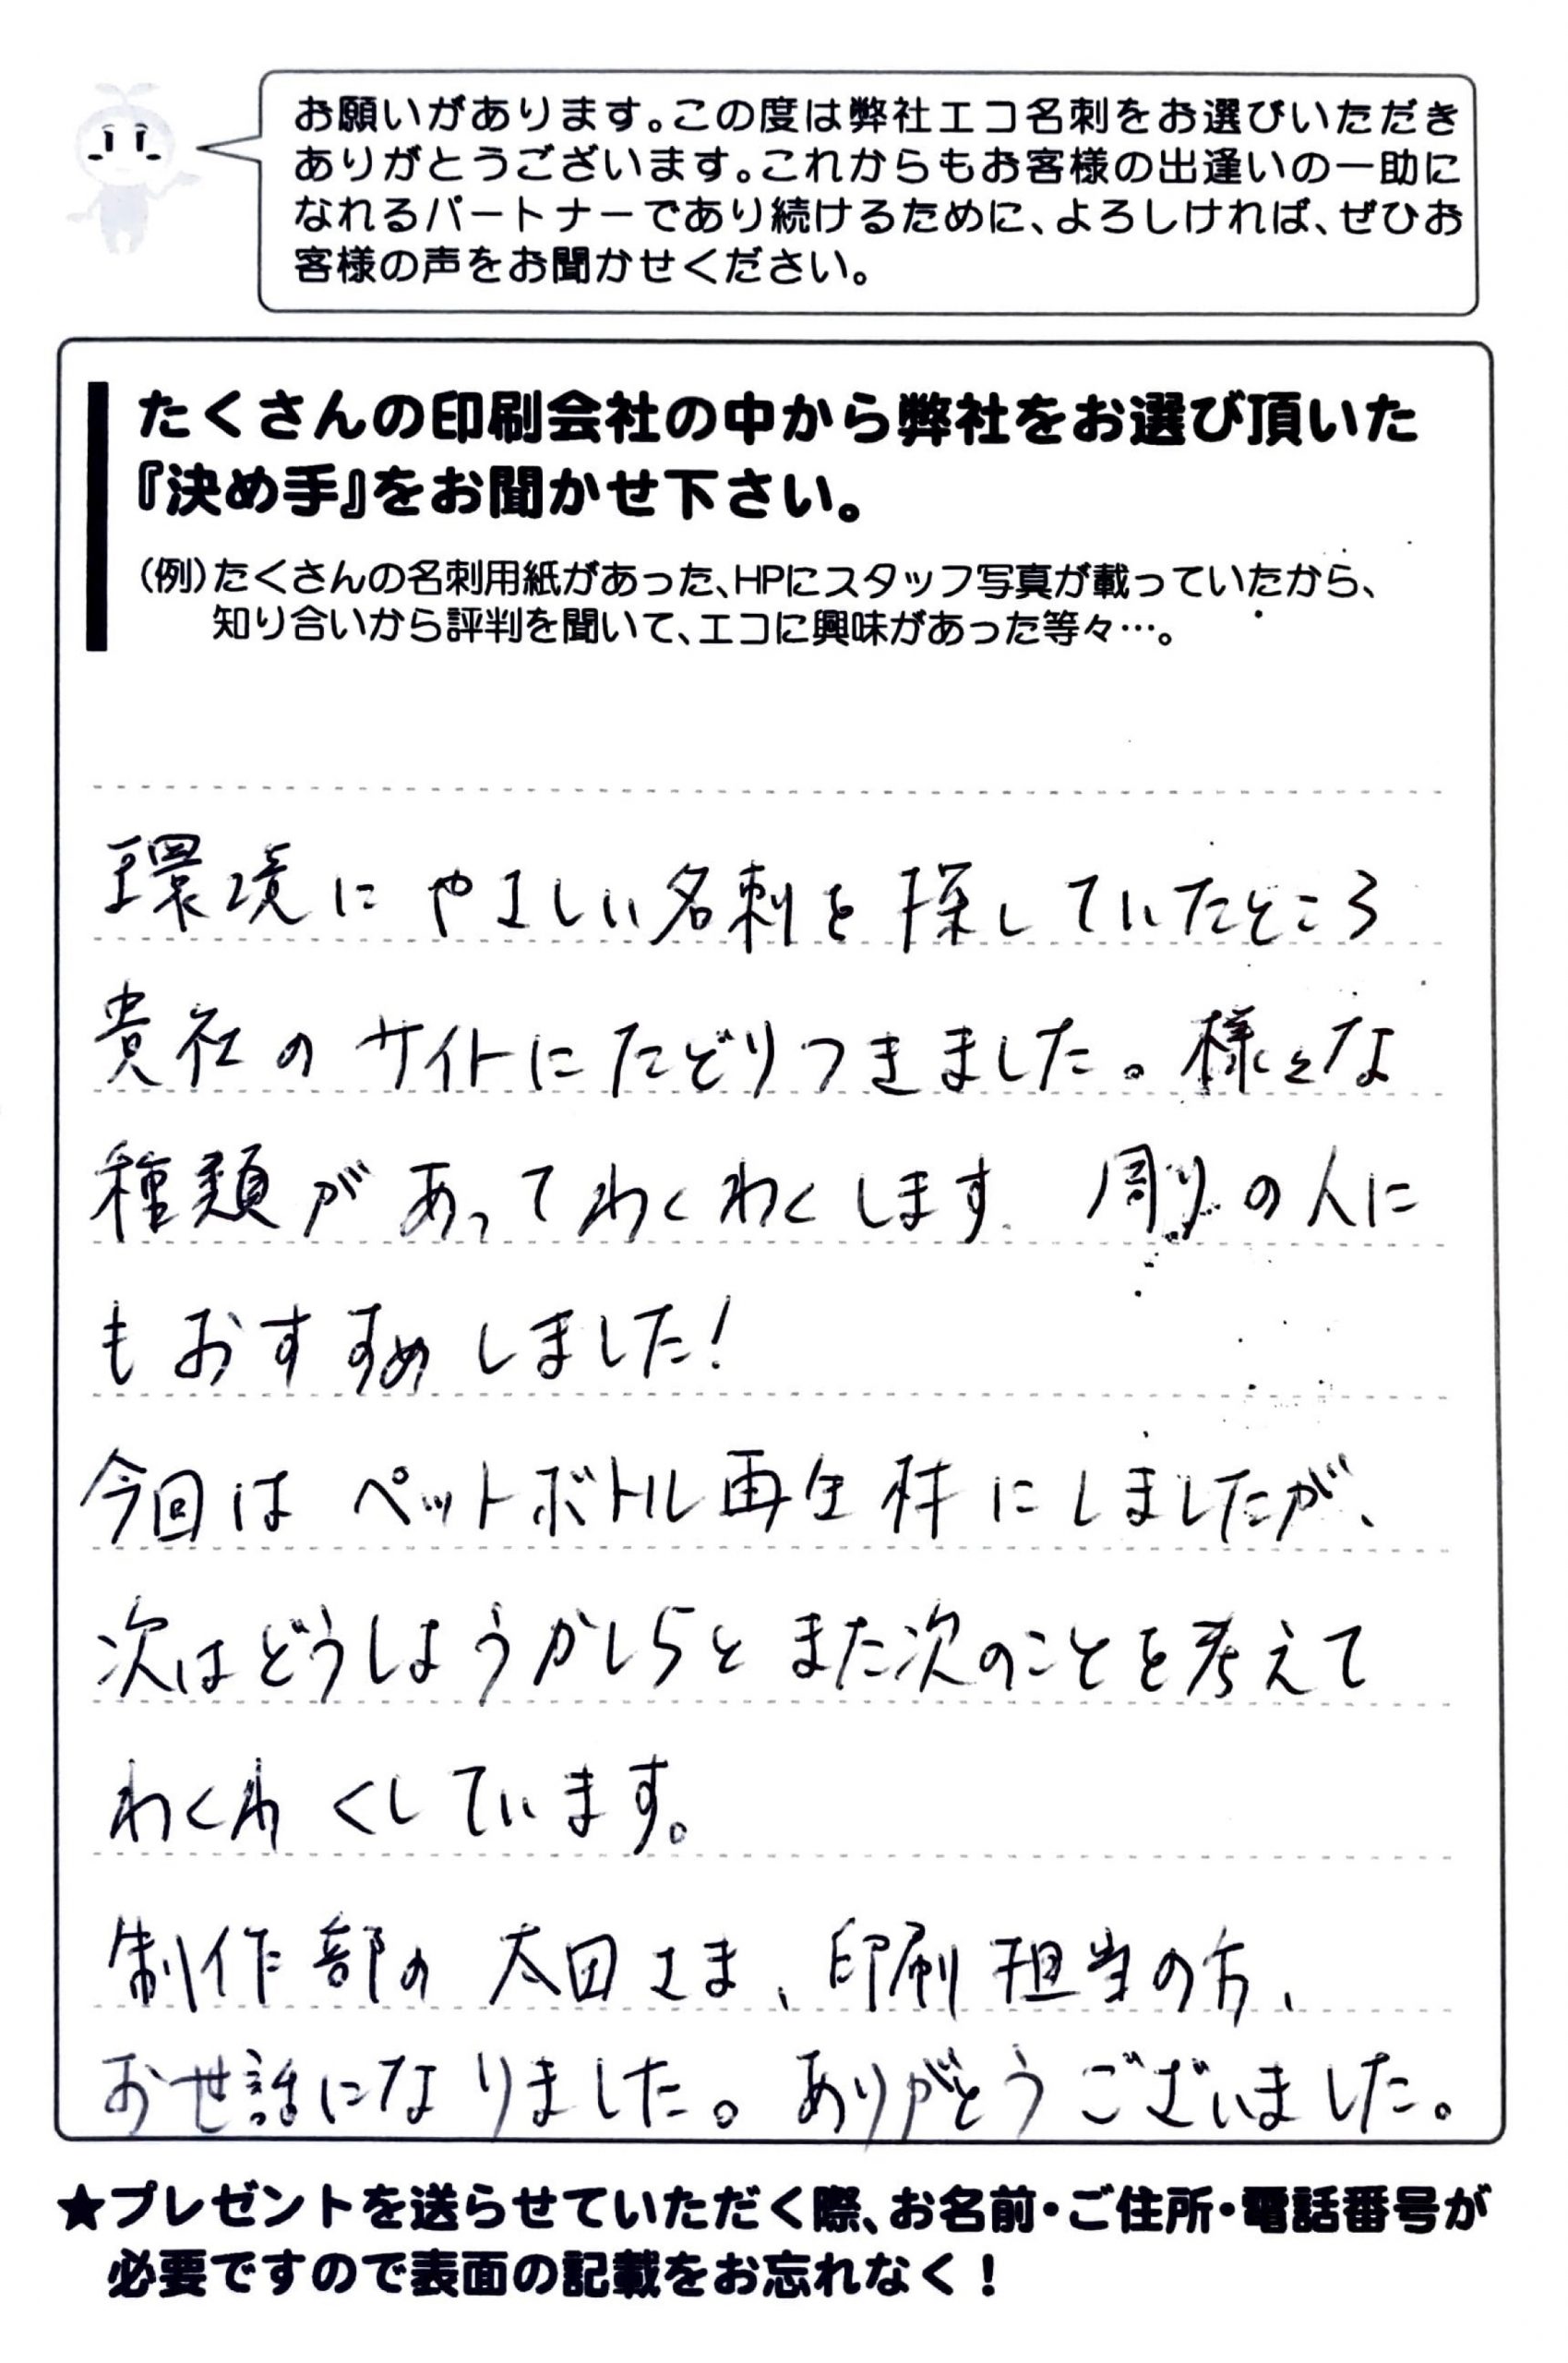 お願いがあります。この度は弊社エコ名刺をお選びいただき
ありがとうございます。これからもお客様の出逢いの一助に
なれるパートナーであり続けるために、よろしければ、ぜひお
客様の声をお聞かせください。
たくさんの印刷会社の中から弊社をお選び頂いた
『決め手』をお聞かせ下さい。
(例)たくさんの名刺用紙があった、HPにスタッフ写真が載っていたから、
知り合いから評判を聞いて、エコに興味があった等々…。
環境にやさしい名刺を探していたところ
貴社のサイトにたどりつきました。様々な
種類があってわくわくします. 周りの人に
もおすすめしました!
今回はペットボトル再生材にしましたが、
次はどうしようかしらとまた次のことを考えて
わくわくしています。
制作部の太田さま、印刷担当の方、
お世話になりました。ありがとうございました。
★プレゼントを送らせていただく際、お名前・ご住所・電話番号が
必要ですので表面の記載をお忘れなく!